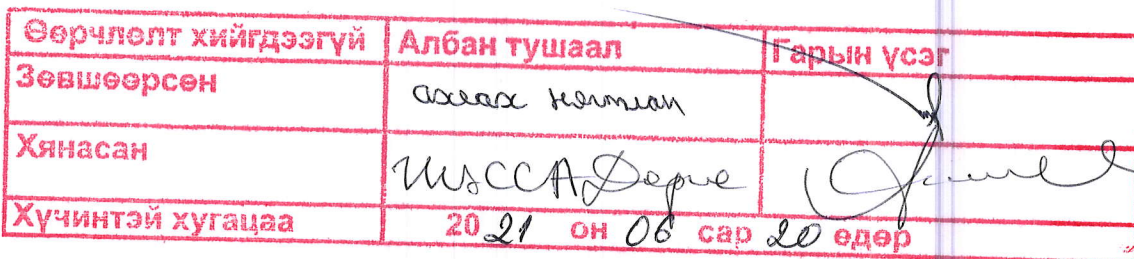 Өөрчлөлт хийгдээгүй Албан тушаал Гарын үсэг
Зөвшөөрсөн ахлах нягтлан
Хянасан
Хүчинтэй хугацаа 2021 он 06 сар 20 өдөр